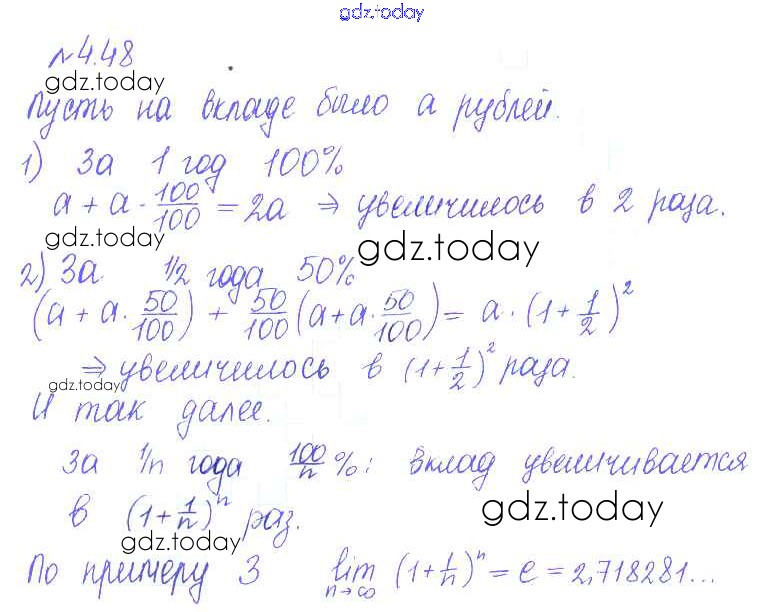 gdz.today
№4.48
gdz.today
Пусть на вкладе было a рублей.
1) За 1 год 100%
a + a · 100/100 = 2a ⇒ увеличилось в 2 раза.
gdz.today
gdz.today
2) За 1/2 года 50%
(a + a · 50/100) + 50/100 (a + a · 50/100) = a · (1 + 1/2)²
⇒ увеличилось в (1 + 1/2)² раза.
gdz.today
И так далее.
За 1/n года 100/n %: вклад увеличивается
в (1 + 1/n)ⁿ раз.
gdz.today
gdz.today
По примеру 3 lim n→∞ (1 + 1/n)ⁿ = e = 2,718281...